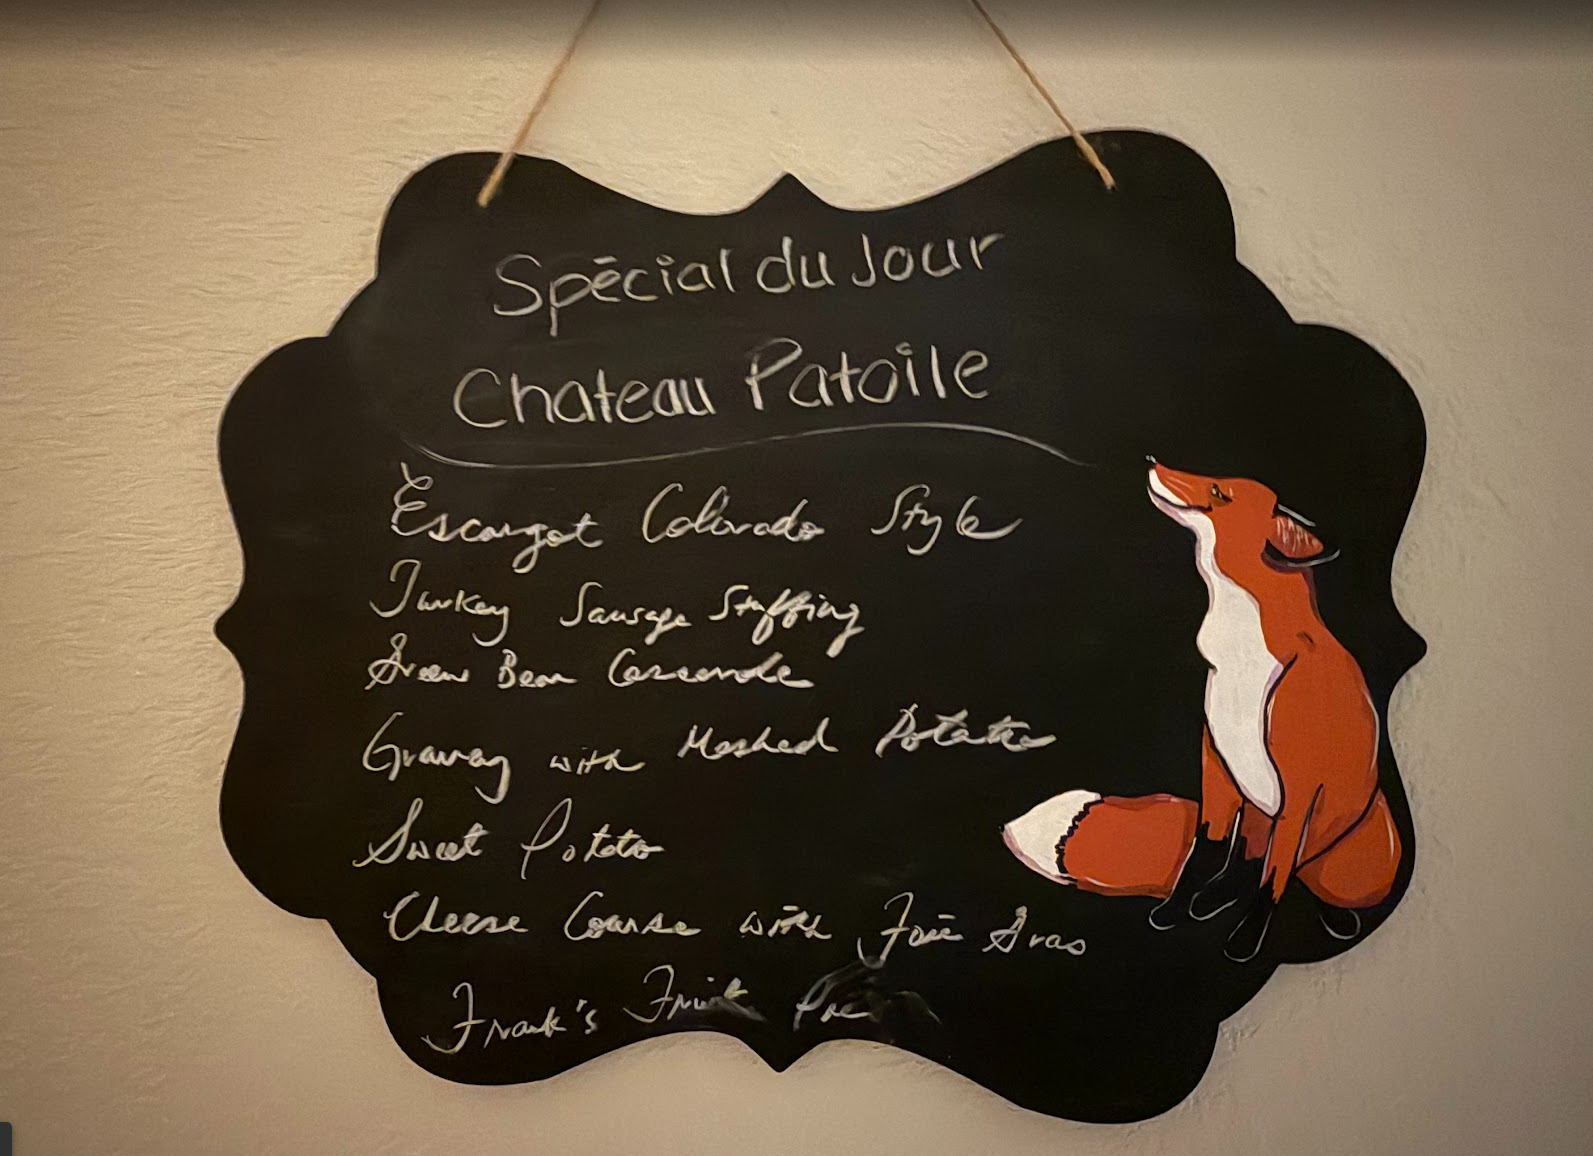 Spécial du Jour
Chateau Patoile
Escargot Colorado Style
Turkey Sausage Stuffing
Green Bean Casserole
Gravey with Mashed Potatoe
Sweet Potato
Cheese Course with Foie Gras
Frank's